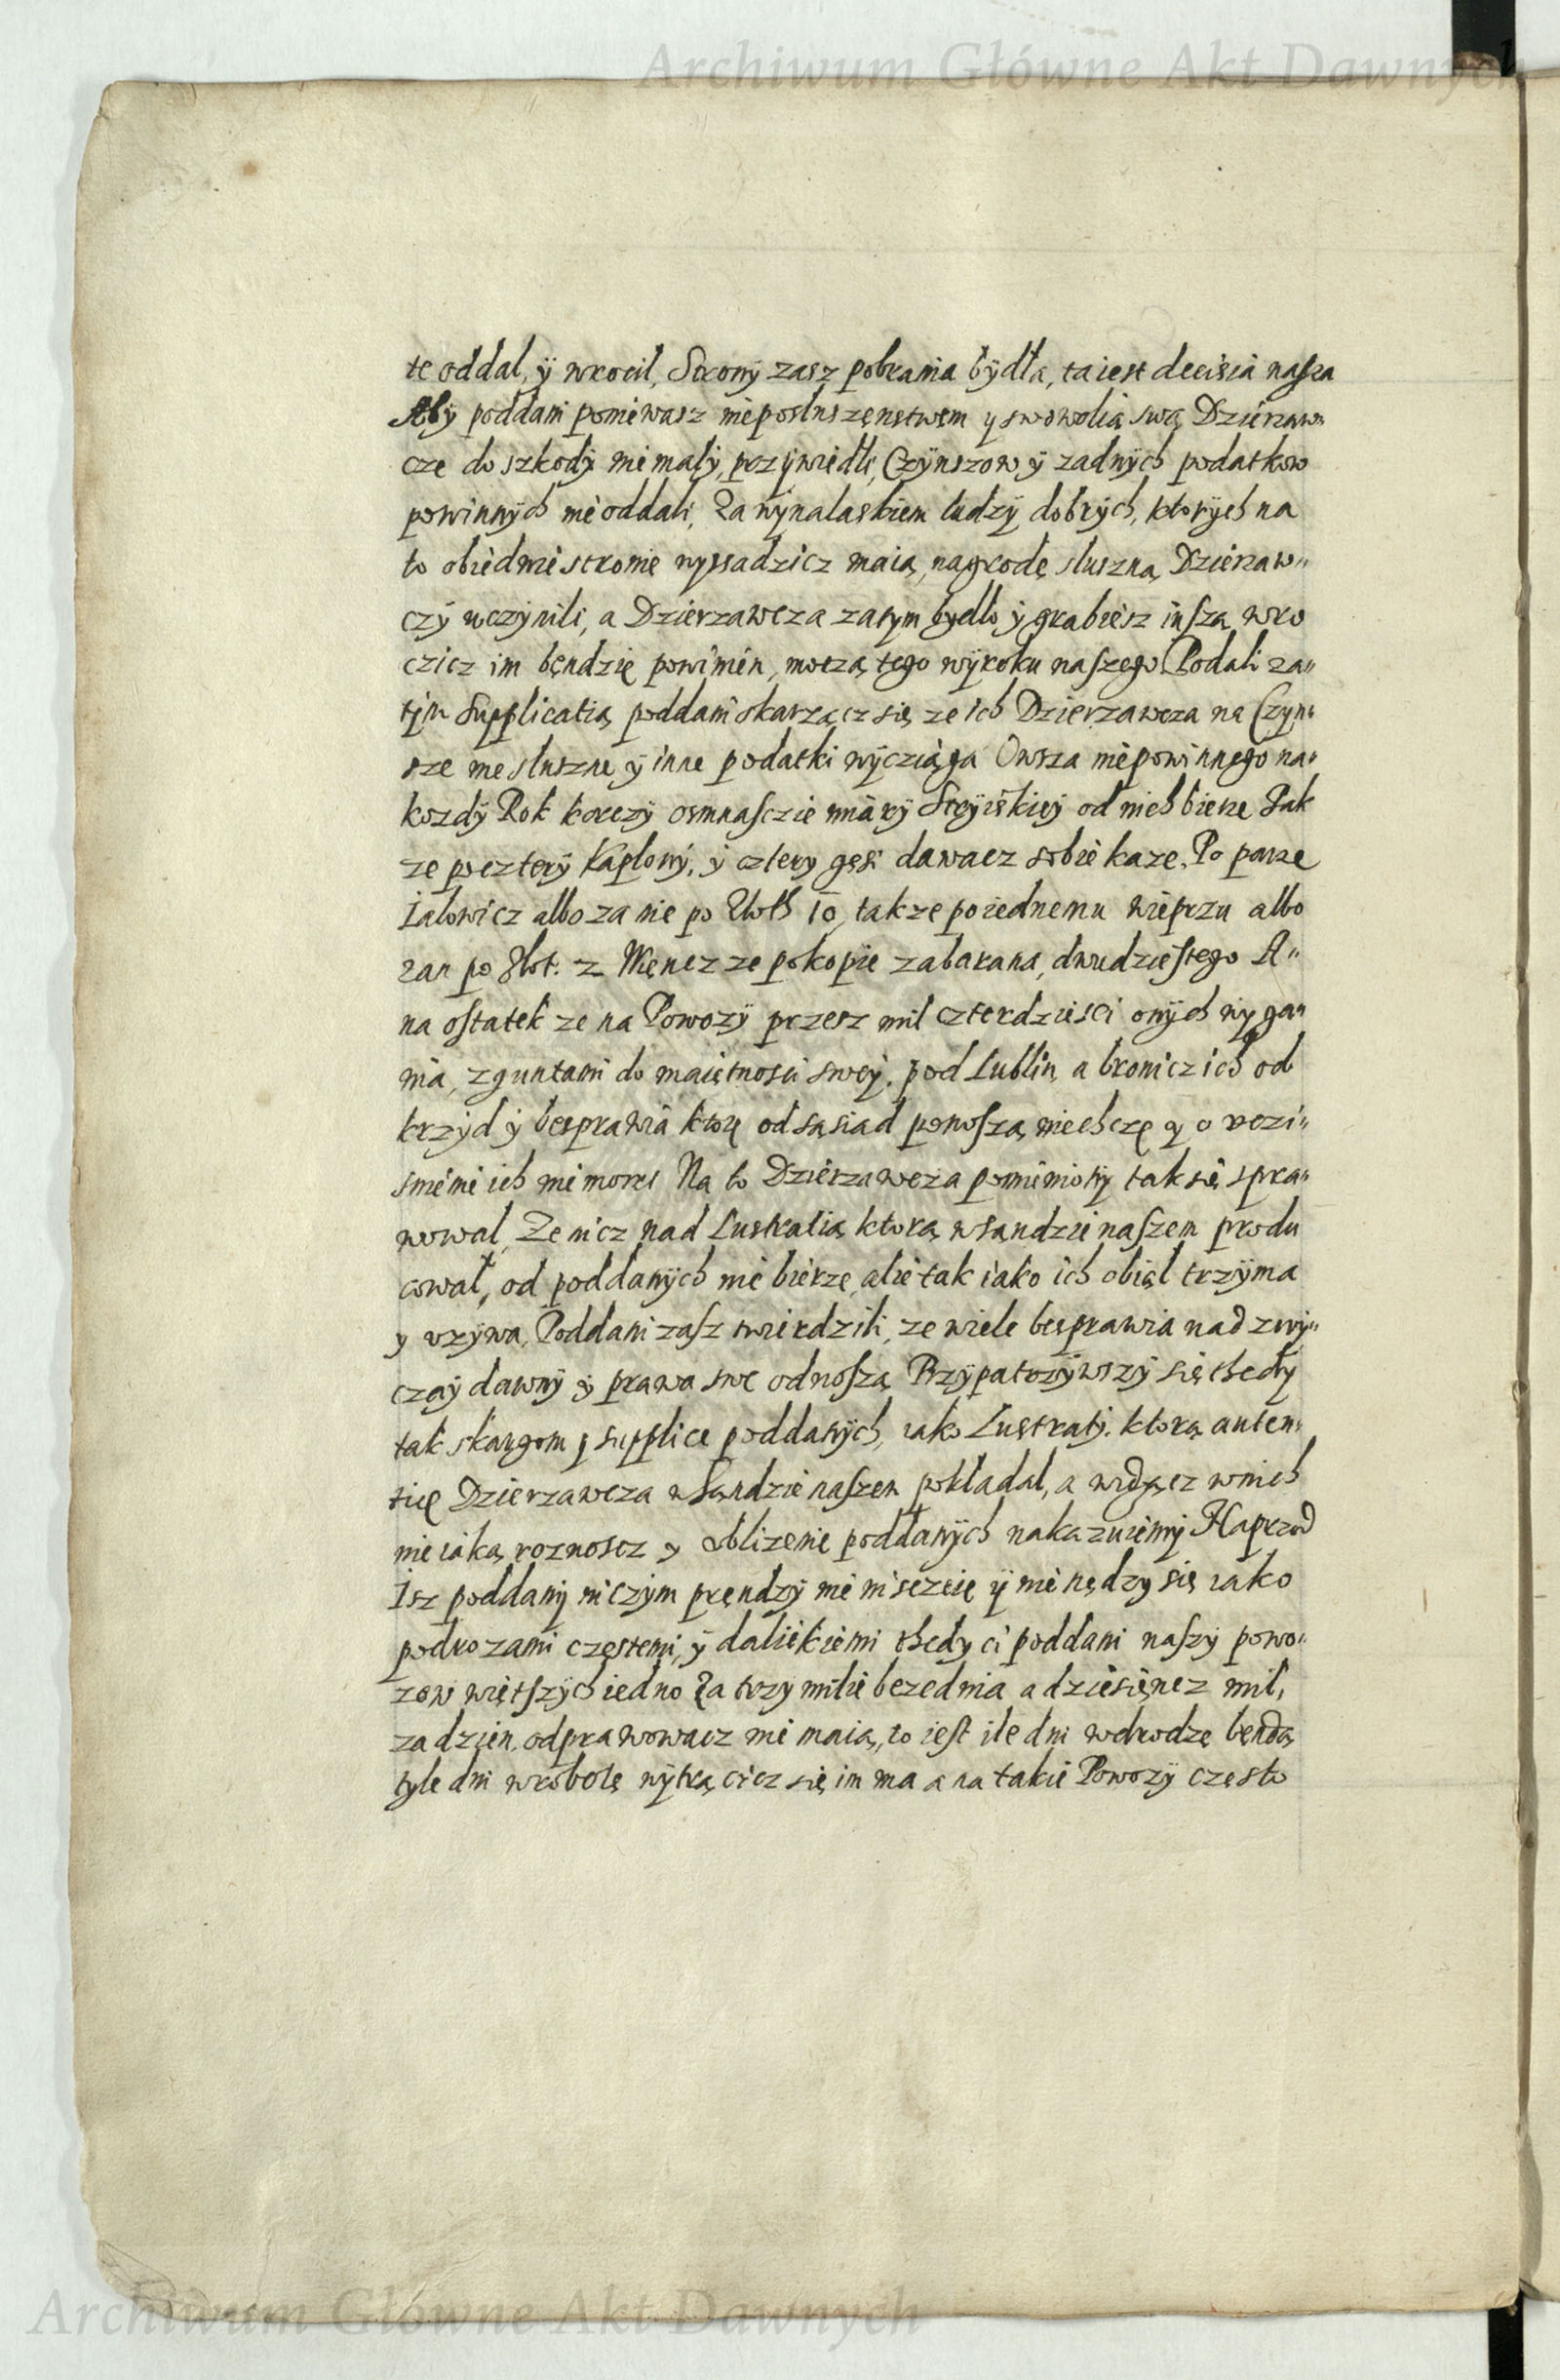 Archiwum Główne Akt Dawnych
te oddal, ÿ wrocil, Stronÿ zasz pobrania bÿdła, ta iest decisia nasza
Abÿ poddani poniewasz nieposluszenstwem y swowolią swą Dzierzaw„
cze do szkodÿ niemałÿ, przÿwiedli, Czÿnszow ÿ zadnÿch podatkow
powinnÿch nieoddali, Za wÿnalaskiem ludzÿ dobrÿch, ktorÿch na
to obiedwie stronie wyssadzicz maią, nagrodę sluszną Dzierzaw„
czÿ uczÿnili, a Dzierzawcza zatym bydlo ÿ grabiesz inszą wro
czicz im bęndzie powinien, moczą tego wÿroku naszego. Podali za„
tÿm Supplicatią poddani skarzącz się ze ich Dzierzawcza na Czyn„
sze niesluszne ÿ inne podatki wÿcziąga Owsa niepowinnego na„
kozdÿ Rok korczÿ osmnasczie miarÿ Strÿiskieÿ od nich bierze Tak
ze po czterÿ Kaplonÿ, ÿ cztery gęsi dawacz sobie kaze, Po parze
Ialowicz albo za nie po Zloth 10, takze poiednemu wieprzu albo
zan po Zlot. z Wiencz ze po kopie zabarana, dwudziestego A„
na ostatek ze na Powozÿ przesz mil czterdziesci onÿch wÿga„
nia, z guntami do maiętnosci sweÿ, pod Lublin, a bronicz ich od
krzÿd ÿ besprawia ktore od sąsiad ponoszą, niechcze ÿ o wezi„
snienie ich niemowi Na to Dzierzawcza pomienionÿ tak się spra„
wowal, Ze nicz nad Lustratią ktorą wsandzie naszem produ
cowal, od poddanÿch nie bierze, alie tak iako ich obiąl trzÿma
y vzÿwa, Poddani zasz twierdzili, ze wiele besprawia nad zwÿ„
czaÿ dawnÿ ÿ prawa swe odnoszą Przÿpatrzÿwszÿ się thedÿ
tak skargom ÿ supplice poddanÿch, iako Lustratÿ, ktorą auten„
tice Dzierzawcza w Sandzie naszem pokładal, a widzącz wnich
nieiaką roznoscz y ubliżenie poddanÿch nakazuiemÿ Naprzod
Isz poddanÿ niczÿm prendzÿ nie niszczeie ÿ nie nędzy się iako
podrozami czestemi, ÿ daliekiemi thedy ci poddani naszÿ powo„
zow więtszÿch iedno Za trzy milie bezednia a dziesięncz mil,
za dzien, odprawowacz nie maią, to iest ile dni wdrodze bendą
tyle dni wrobotę wÿtrącicz się im ma a na takie Powozÿ często
Archiwum Główne Akt Dawnych